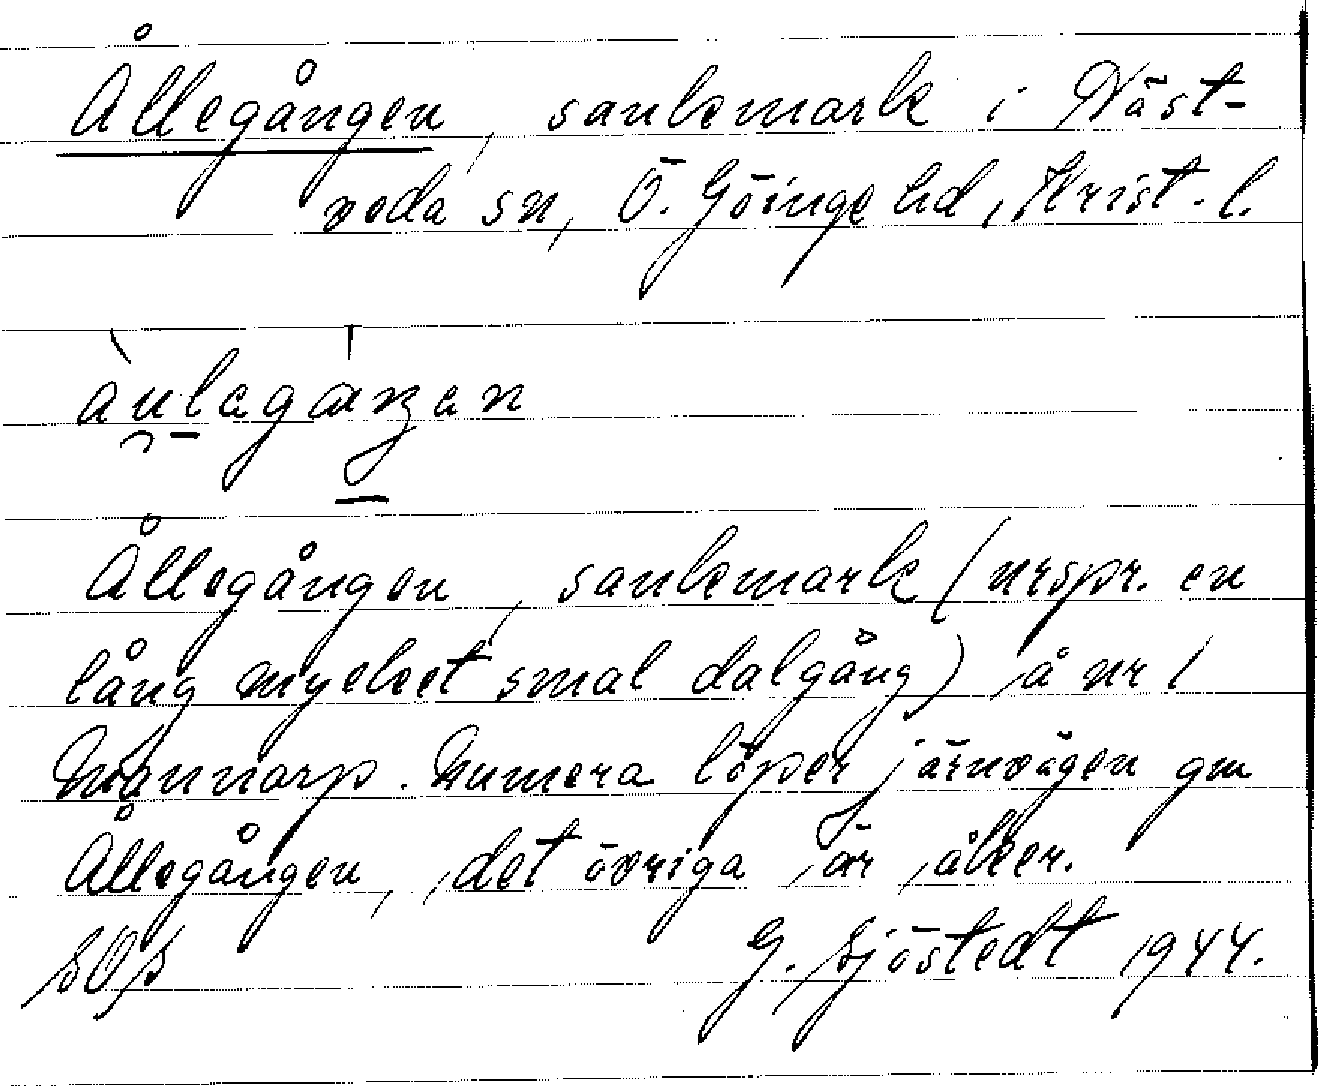 Ållegången, sankmark i Näst-
veda sn, Ö. Göinge hd, Krist. l.
Ållegången, sankmark (urspr. en
lång mycket smal dalgång) å nr 1
Mannarp. Numera löper järnvägen gm
Ållegången, det övriga är åker.
SOÅ G. Sjöstedt 1944.